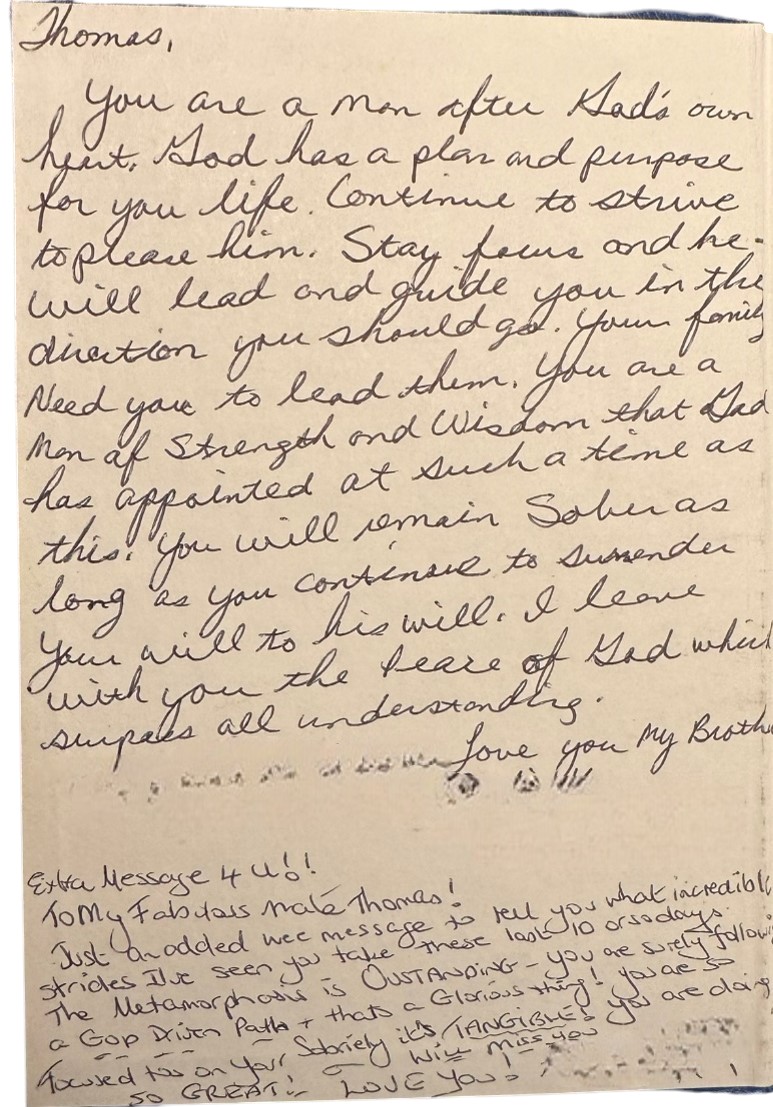 Thomas,
You are a man after God's own
heart. God has a plan and purpose
for you life. Continue to strive
to please him. Stay focus and he
will lead and guide you in the
direction you should go. Your family
Need you to lead them. You are a
Man of Strength and Wisdom that God
has appointed at such a time as
this. You will remain Sober as
long as you continue to surrender
your will to his will. I leave
with you the Peace of God which
surpass all understanding.
Love you My Broth
Extra Message 4 U!!
To My Fabulous Mate Thomas!
Just an added wee message to tell you what incredible
strides I've seen you take these last 10 or so days.
The Metamorphosis is OUSTANDING - you are surely followi
a GOD Driven Path + thats a Glorious thing! you are so
Focused too on your Sobriety it's TANGIBLE! you are doing
SO GREAT! Will MISS you
LOVE YOU!